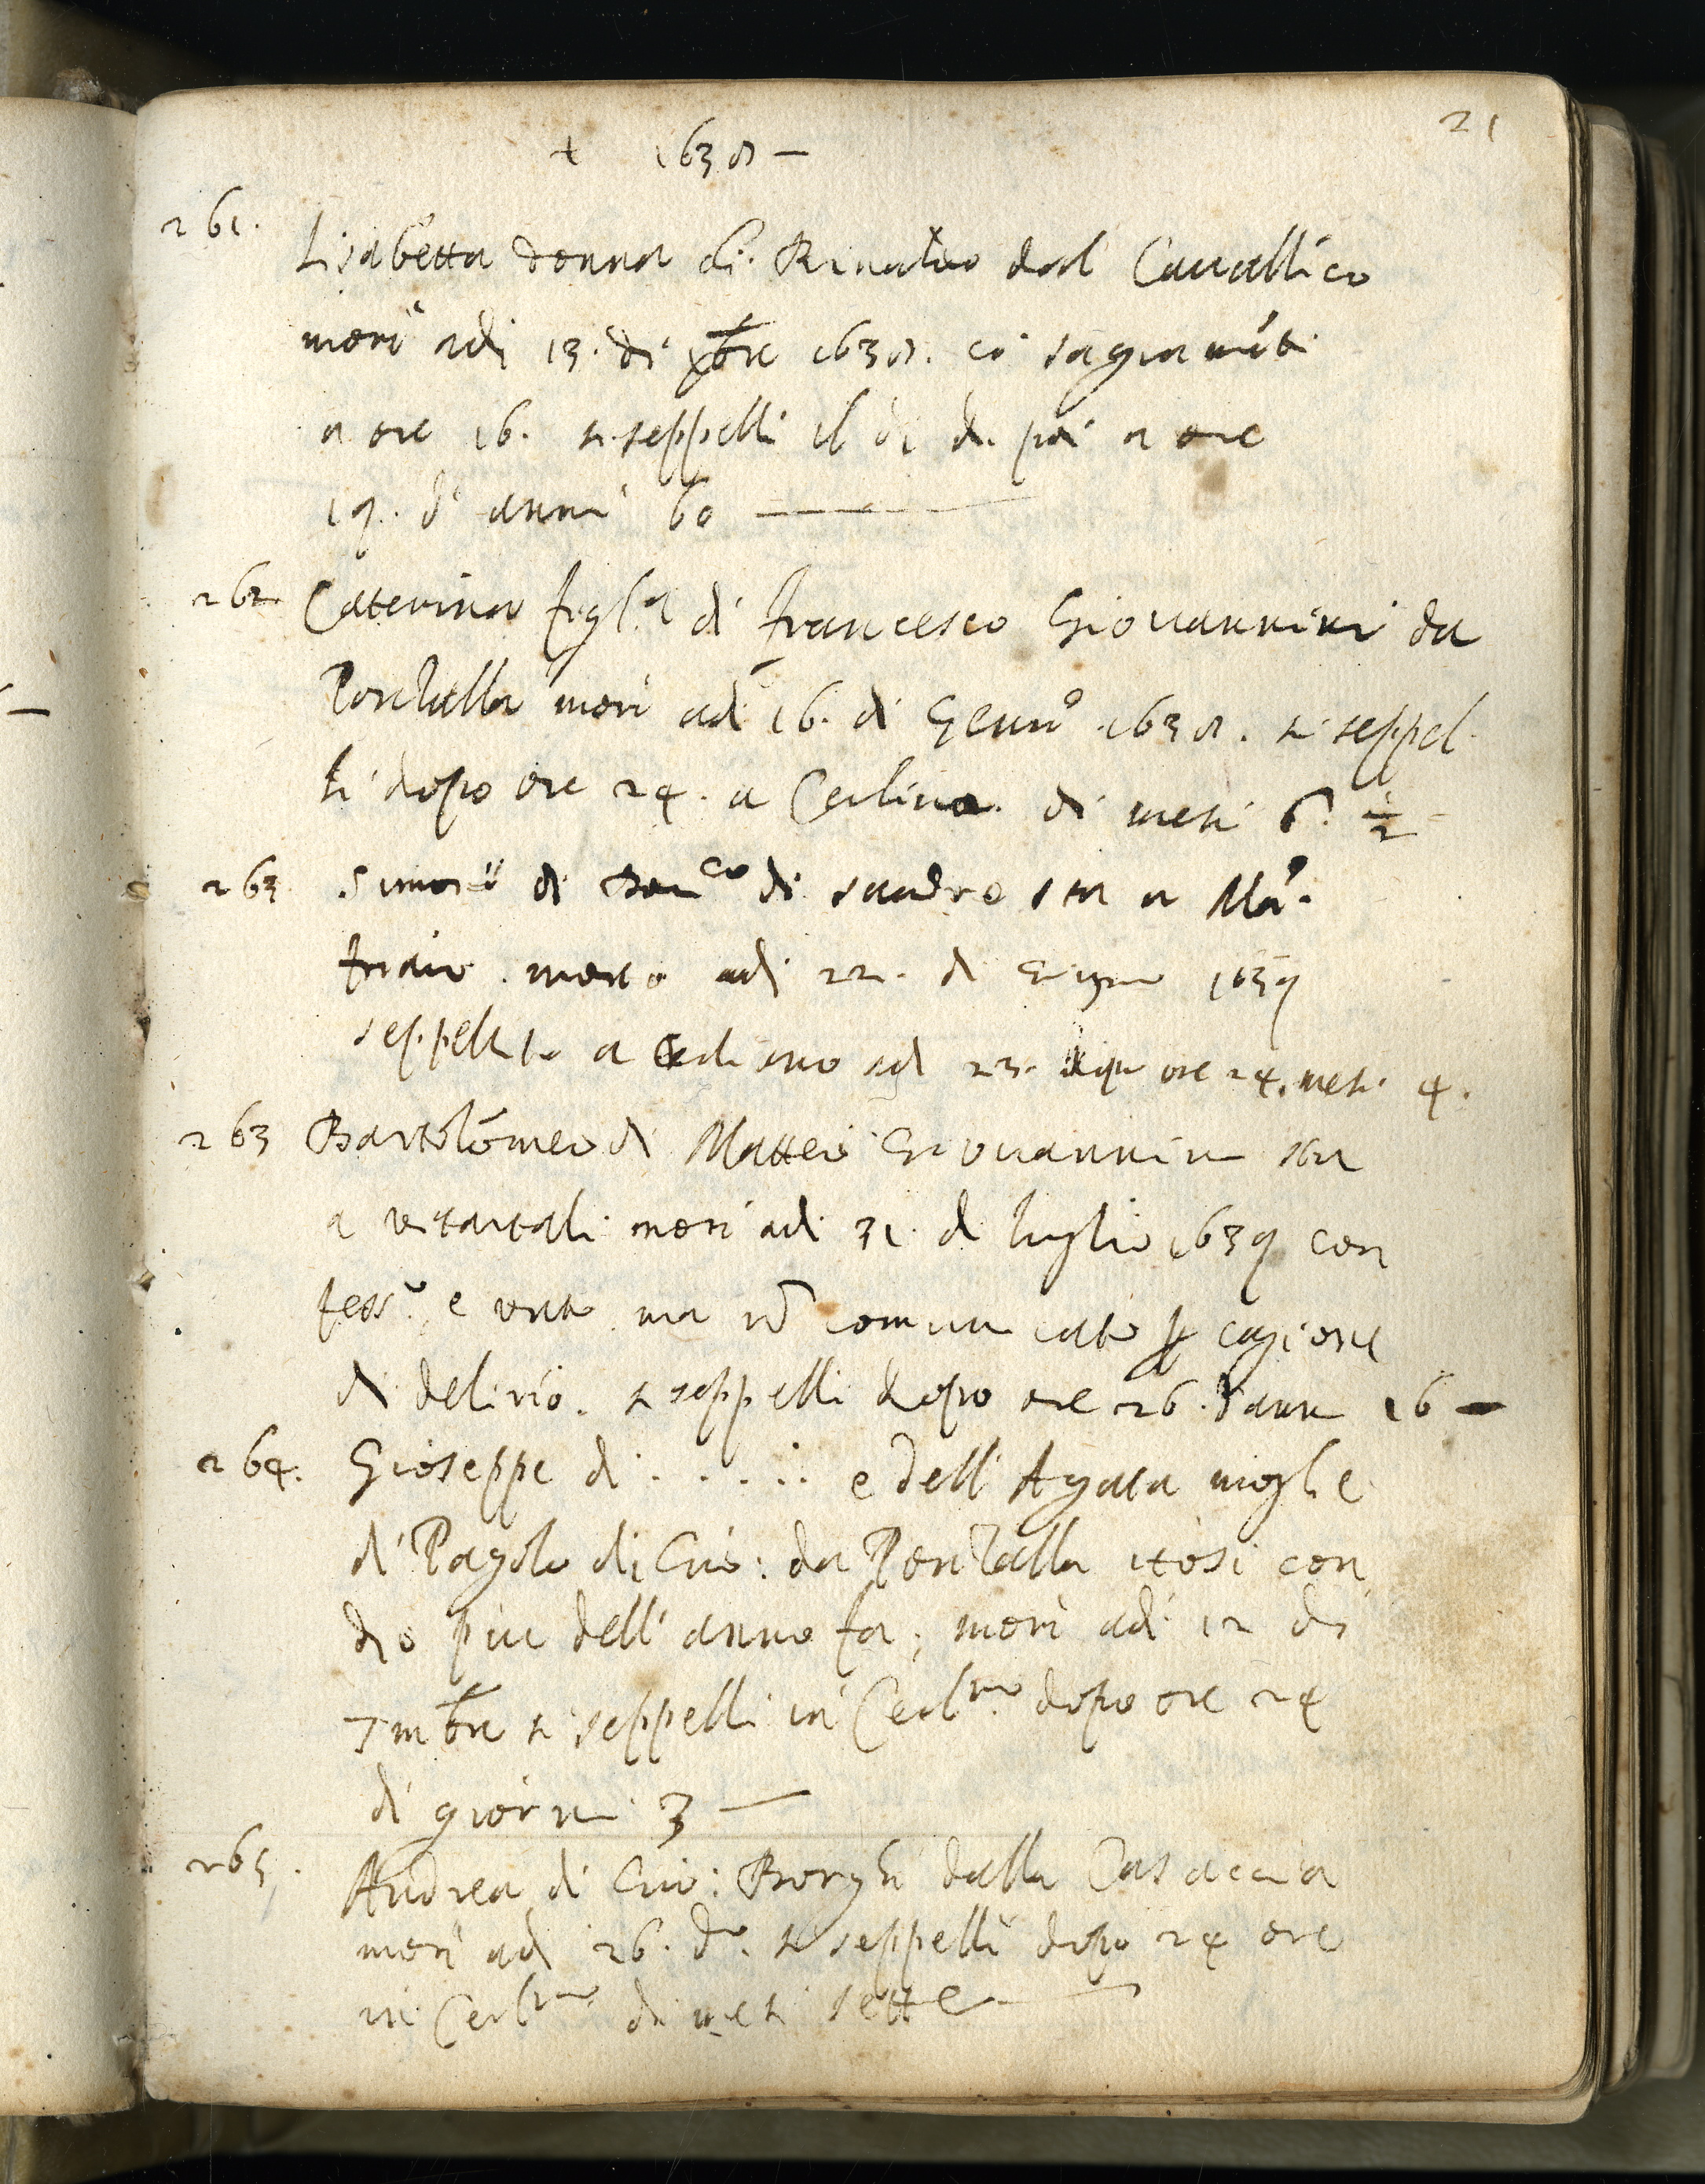 21
+ 1638 —
261. Lisabetta donna di Rinaldo dal Cavallico
morì adi 13. di xbre 1638. cõ sagramẽti
a ore 16. si seppellì il di di poi a ore
19. d'anni 60 —
262 Caterina figl.a di francesco Giovannini da
Pontalla morì adi 16. di Genn.o 1638. si seppel
lì dopo ore 24. a Cerlino. di mesi 6. 1/2
263 di Dom.co di sandro sta a Mõ.
morto adi 22. di Giugno 1639
seppellito a Cerliano adi 23. dopo ore 24. mesi 4.
263 Bartolomeo di Matteo Giovannini sta
a morì adi 31. di luglio 1639 con
fess.o, e unto ma nõ comunicato p cagione
di delirio. si seppellì dopo ore 26. d'anni 16 —
264. Gioseppe di . . . . . . e dell'Agata moglie
di Pagolo di Gio: da Pontalla itosi con
dio piu dell'anno fa; morì adi 12 di
7mbre si seppellì in Cerl.no dopo ore 24
di giorni 3 —
265. Andrea di Gio: Borghi dalla Casaccia
morì adi 26. d.o si seppellì dopo 24 ore
in Cerl.no di mesi sette —